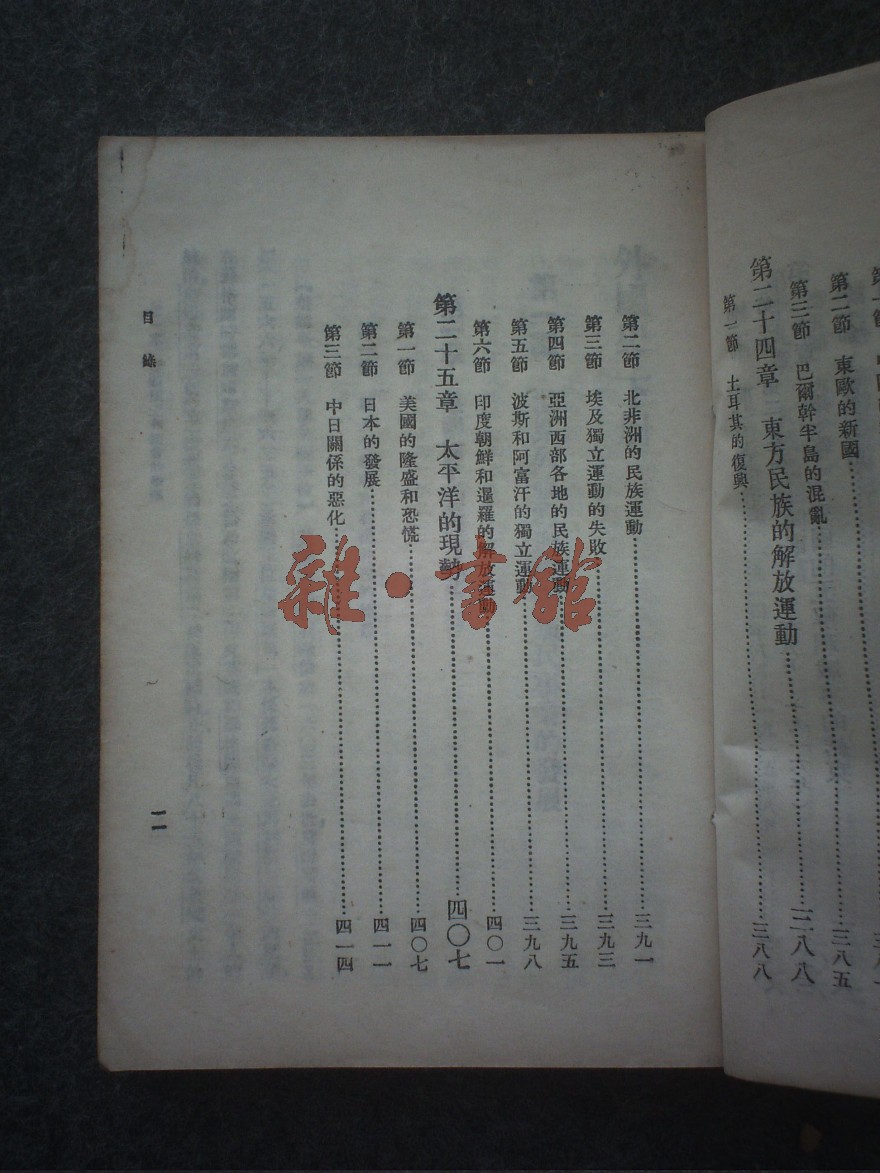 第二節 東歐的新國……三八五
第三節 巴爾幹半島的混亂
第二十四章 東方民族的解放運動……三八八
第一節 土耳其的復興……三八八
第二節 北非洲的民族運動……三九一
第三節 埃及獨立運動的失敗……三九三
第四節 亞洲西部各地的民族運動……三九五
第五節 波斯和阿富汗的獨立運動……三九八
第六節 印度朝鮮和暹羅的解放運動……四〇一
第二十五章 太平洋的現勢……四〇七
第一節 美國的隆盛和恐慌……四〇七
第二節 日本的發展……四一一
第三節 中日關係的惡化……四一四
目錄 一一
雜·書館